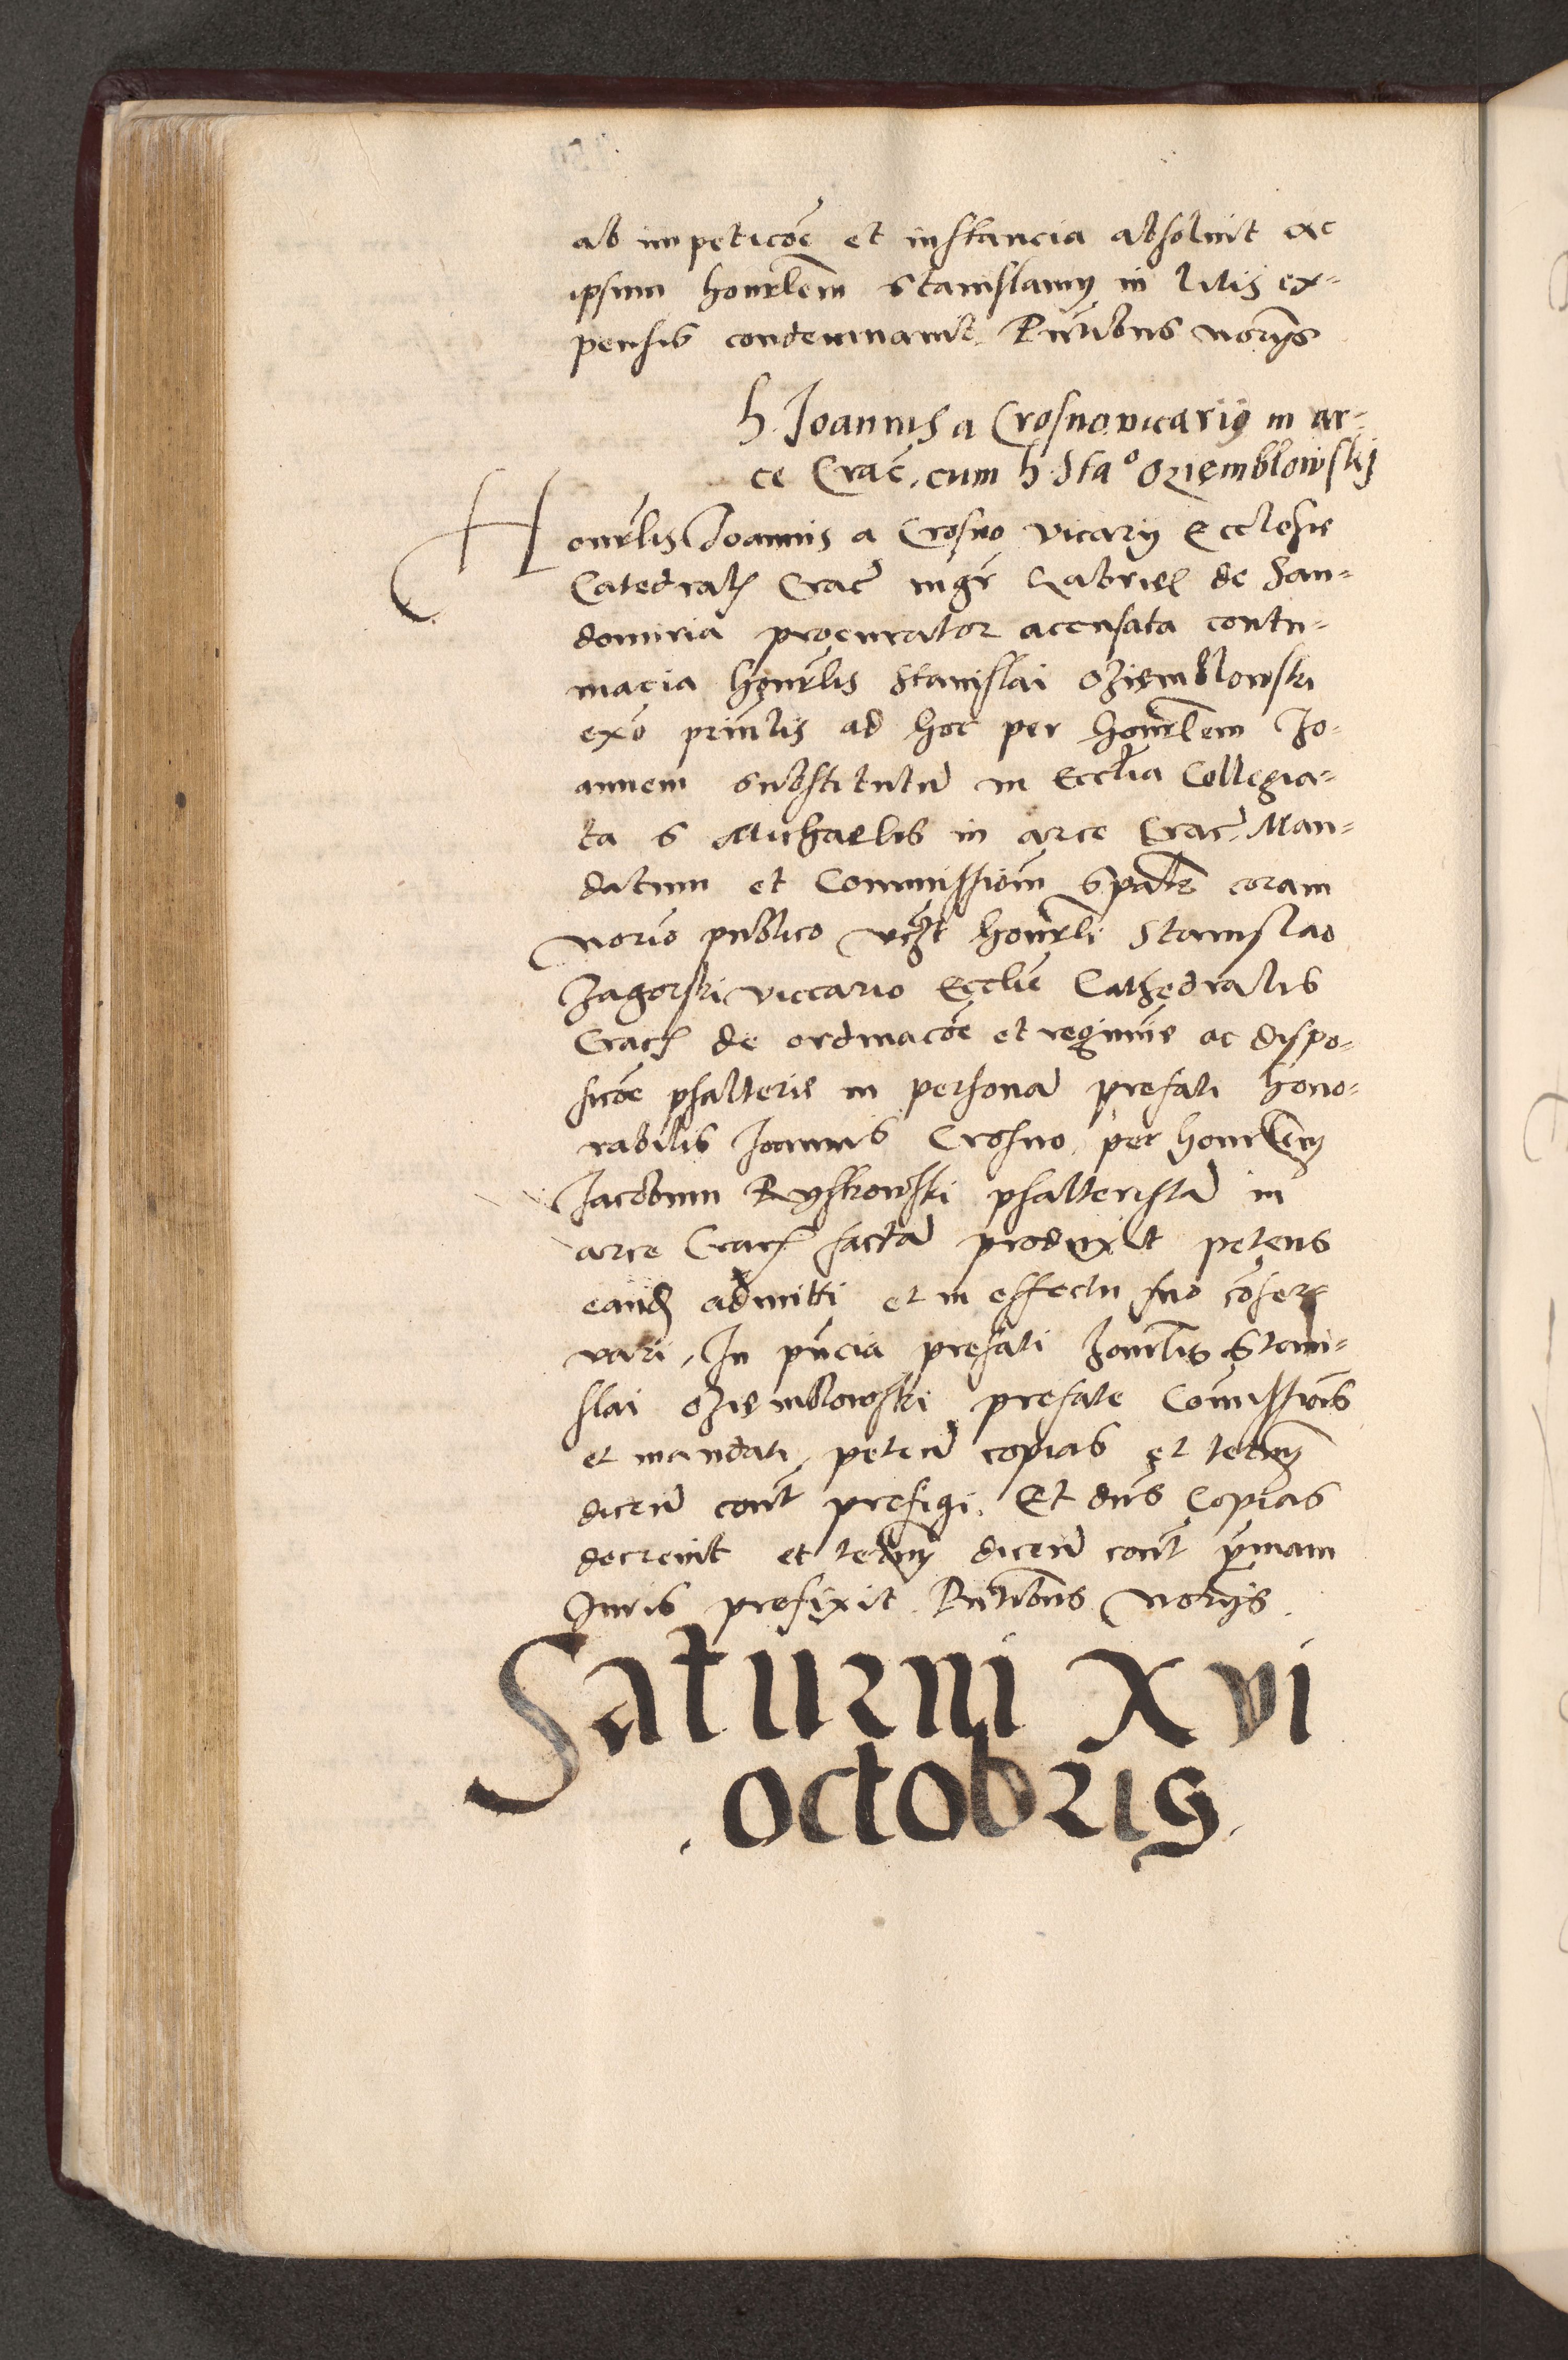 ab impeticoe et instancia absoluit ac
ipsum honrlem Stanislaum in litis ex=
pensis condemnauit. Pntibus notrys
h. Joannis a Crosno vicariis in ar=
ce Crac. cum h. Sta⁰ Oziemblowskj
Honrlis Joannis a Crosno vicary Ecclesie
Catedralis Crac mgr Gabriel de San=
domiria procurator accusata contu=
macia honrlis Stanislai Oziemblowski
exo principalis ad hoc per honrlem Jo=
annem substitutu in Ecclia Collegia=
ta S Michaelis in arce Crac. Man=
datum et Commissiom coram
norio publico honrli Stanislao
Zagorski viccario Ecclie Cathedralis
Crac de ordinacoe et regimine ac dispo=
sicoe psalterie in persona prefati hono=
rabilis Joannis Crosno per honrlem
Jacobum Ryskowski psalterista in
arce Crac facta produxit petens
eand admitti et in effectu suo coser=
vari, In pncia prefati honrlis Stani=
slai Oziemblowski prefate Comissiois
et mandati peten copias et termm
dicen cont prefigi. Et dns Copias
decreuit et termm dicen cont primam
Juris prefixit. Pntibus notrys.
Saturni xvi
. octobris.